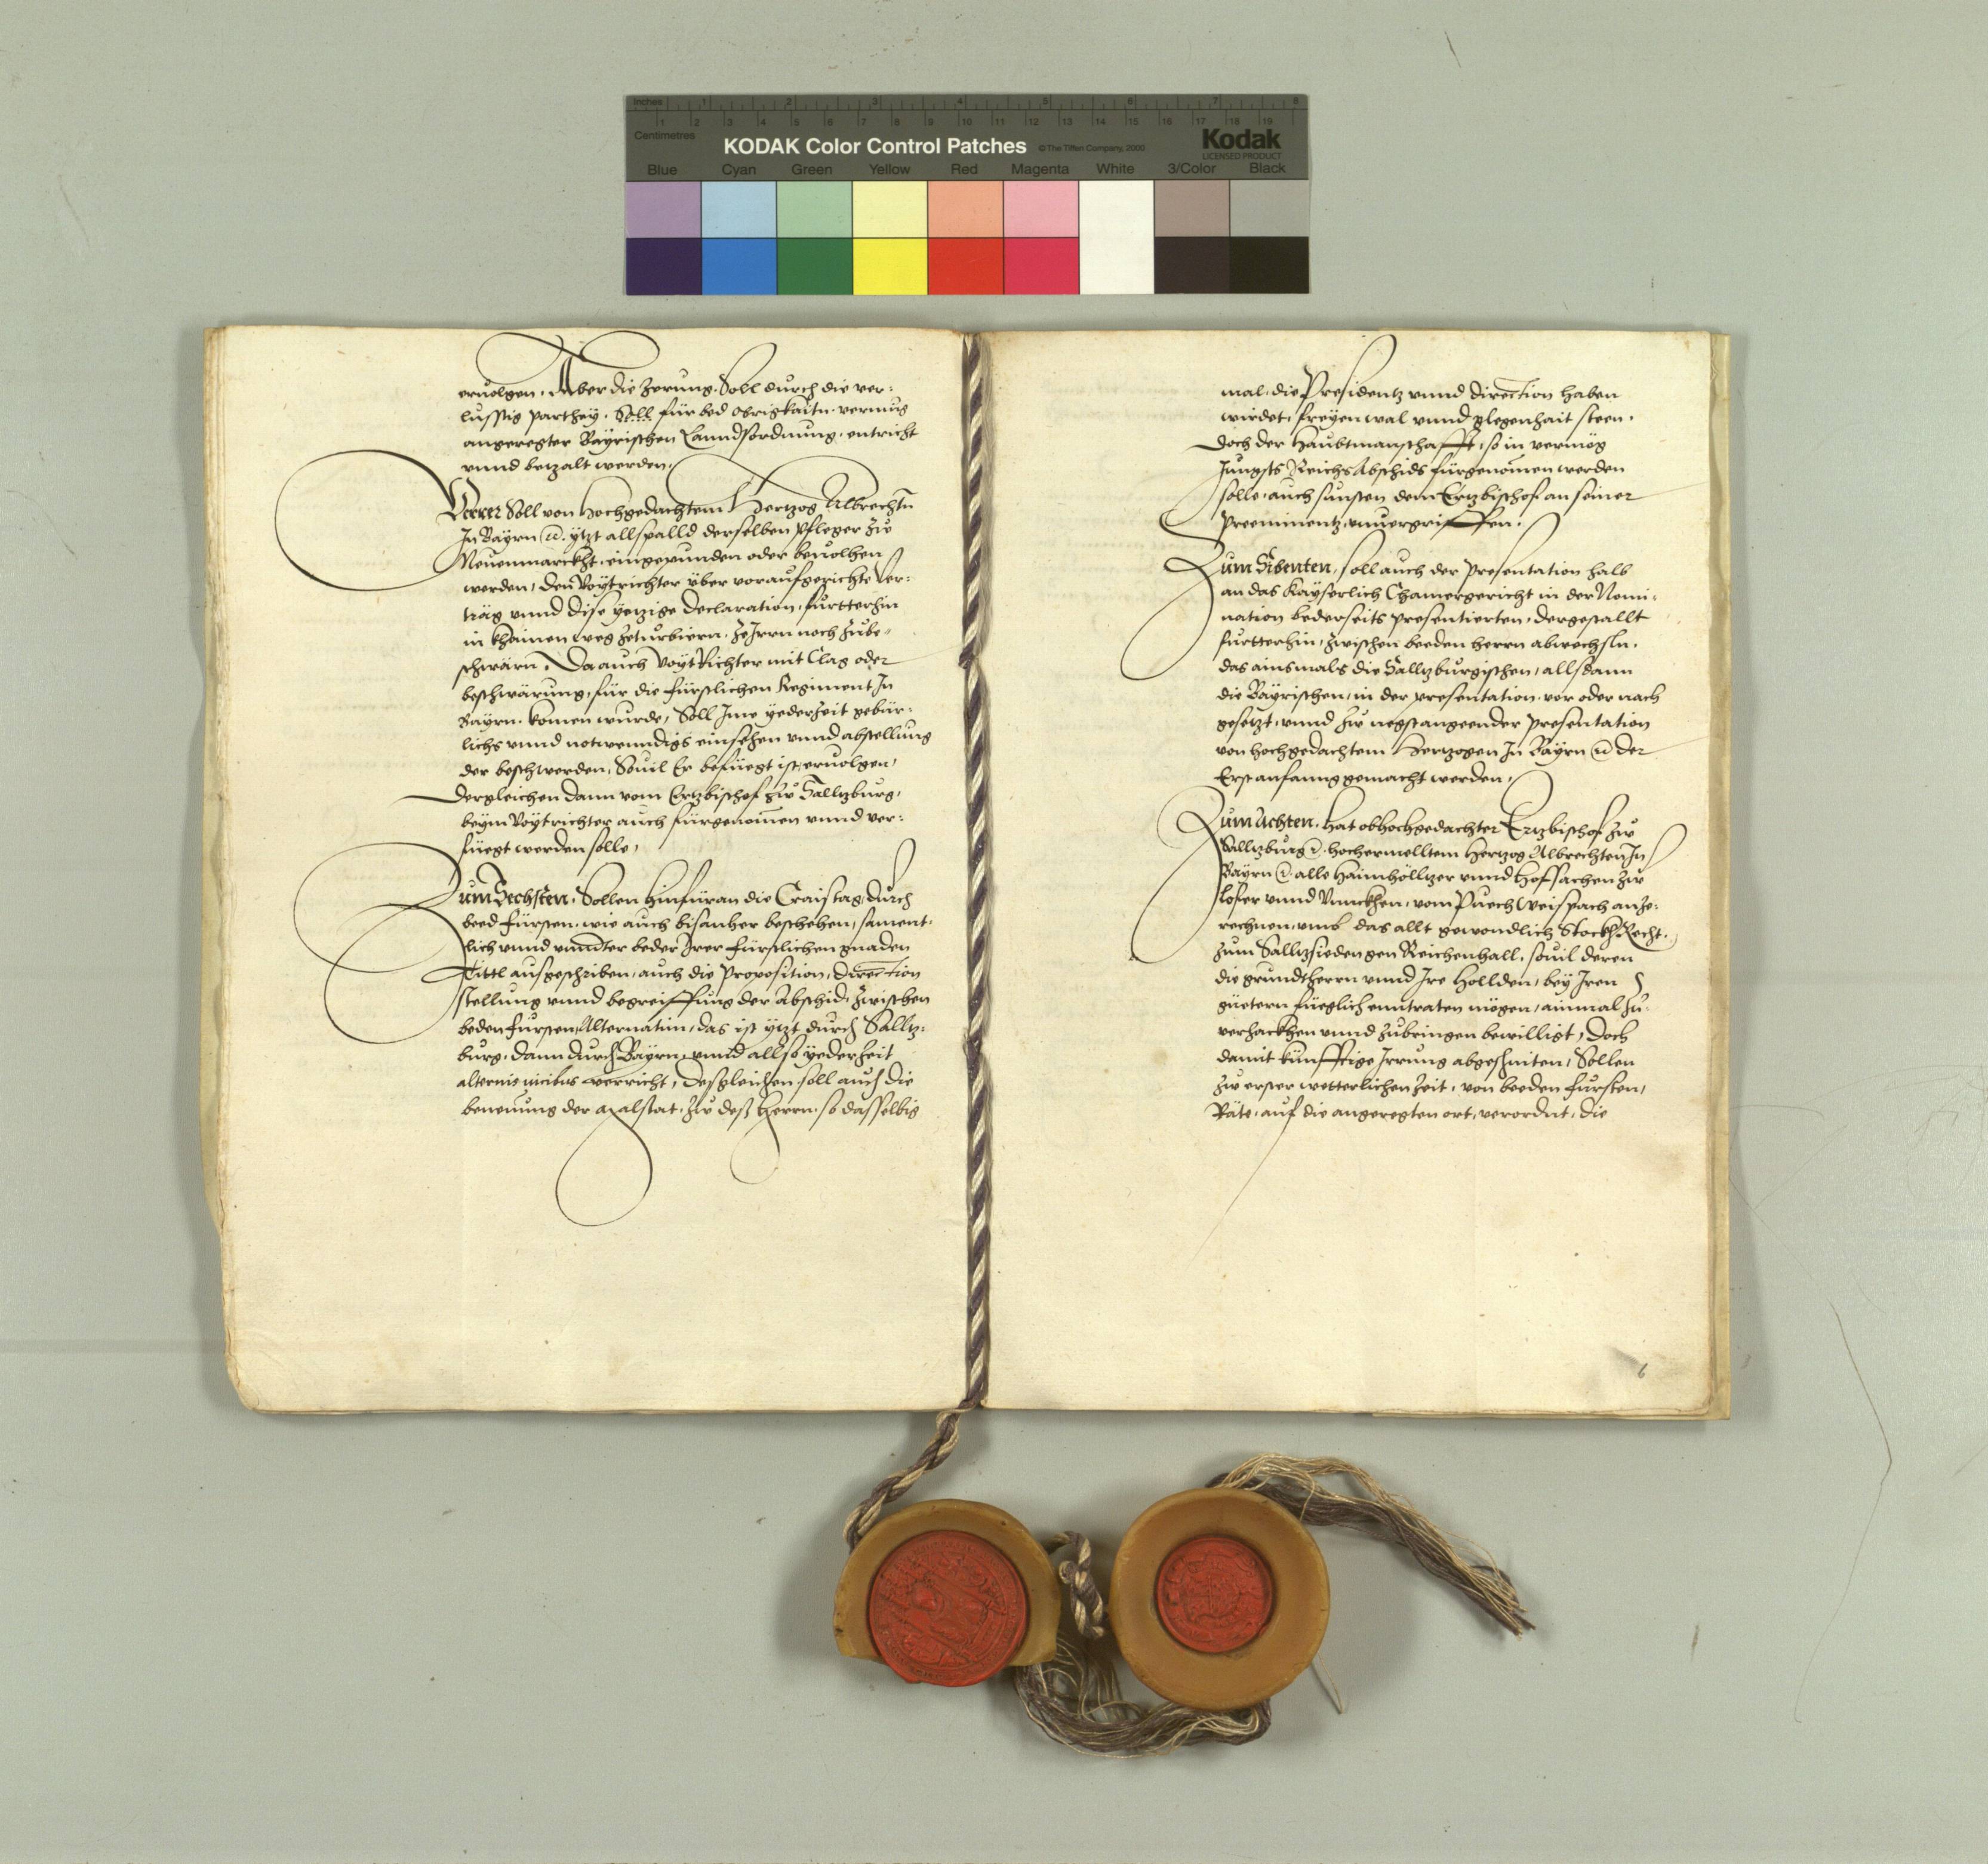 Inches 1 2 3 4 5 6 7 8
1 2 3 4 5 6 7 8 9 10 11 12 13 14 15 16 17 18 19
Centimetres
KODAK Color Control Patches ©The Tiffen Company, 2000 Kodak
LICENSED PRODUCT
Blue Cyan Green Yellow Red Magenta White 3/Color Black
eruolgen. Aber die Zerung. Soll durch die ver:
lusstig parthey. Soll für bed obrigkaitn. vermüg
angeregter Bayrischen Lanndsordnung. entricht
vnnd betzalt werden.
Verrer Soll von Hochgedachtem Hertzog Albrechtn
In Bayrn ꝛc. ytzt allspalld derselben Pfleger zw
Neuenmarckht. eingepunden oder beuolhen
werden, den Voytrichter yber voraufgerichte Ver:
träg vnnd dise yetzige declaration, fürtterhin
in khainen weg zeturbiern. zeJrrn noch zube-
schwärn. Da auch VoytRichter mit Clag oder
beschwärung, für die fürstlichen Regiment In
Bayrn. komen wurde, Soll Jme yederzeit gebür:
lichs vnnd notwenndigs einsehen vnnd abstellung
der beschwerden, Souil Er befüegt ist, eruolgen,
Dergleichen dann vom Ertzbischof zw Salltzburg,
beym Voytrichter auch fürgenomen vnnd ver:
füegt werden solle,
Zum Sechsten. Sollen hinfüran die Craistag, durch
beed Fürsten. wie auch bisanher beschehen, sament:
lich vnnd vnndter beder Jrer Fürstlichen gnaden
Tittl ausgeschriben, auch die Proposition, direction
Stellung vnnd begreiffung der Abschid, zwischen
beden Fürsten, Alternatim, das ist ytzt durch Salltz:
burg, dann durch Bayrn, vnnd allso yederzeit
alternis uicibus verricht, desgleichen soll auch die
benenung der malstat, zw deß Herrn, so dasselbig
mal, die Presidentz vnnd direction haben
wirdet, freyen wal vnnd glegenhait steen.
Doch der Haubtmanschafft, so in vermög
Jungsts ReichsAbschids fürgenomen werden
solle, auch sunsten dem Ertzbischof an seiner
Preeminentz, vnuergriffen.
Zum Sibenten, soll auch der Presentation halb
an das Kayserlich Chamergericht in der Nomi:
nation bederseits presentierten, dergestallt
fürtterhin, zwischen beeden herrn abwechsln.
das ainsmals die Salltzburgischen, allsdann
die Bayrischen, in der presentation. vor oder nach
gesetzt, vnnd zw negstangeender presentation
von hochgedachtem Hertzogen In Bayrn ꝛc der
Erst anfanng gemacht werden.
Zum Achten. Hat obhochgedachter Ertzbischof zw
Salltzburg ꝛc. hochermelltem Hertzog Albrechten In
Bayrn ꝛc. alle Haimhölltzer vnnd Hofsachen zw
Lofer vnnd Vnnckhen, vom Puech Weispach anze:
rechnen, vmb das allt gewondlich StockhRecht.
zum Salltzsieden gen Reichenhall, souil deren
die grundtherrn vnnd Jre Hollden, bey Jren
güetern füeglich enntraten mögen, ainmal zu
verhackhen vnnd zubringen bewilligt, Doch
damit künfftige Jrrung abgeschniten, Sollen
zw erster wetterlichen zeit, von beeden Fürsten,
Räte, auf die angeregten ort, verordnt, die
6